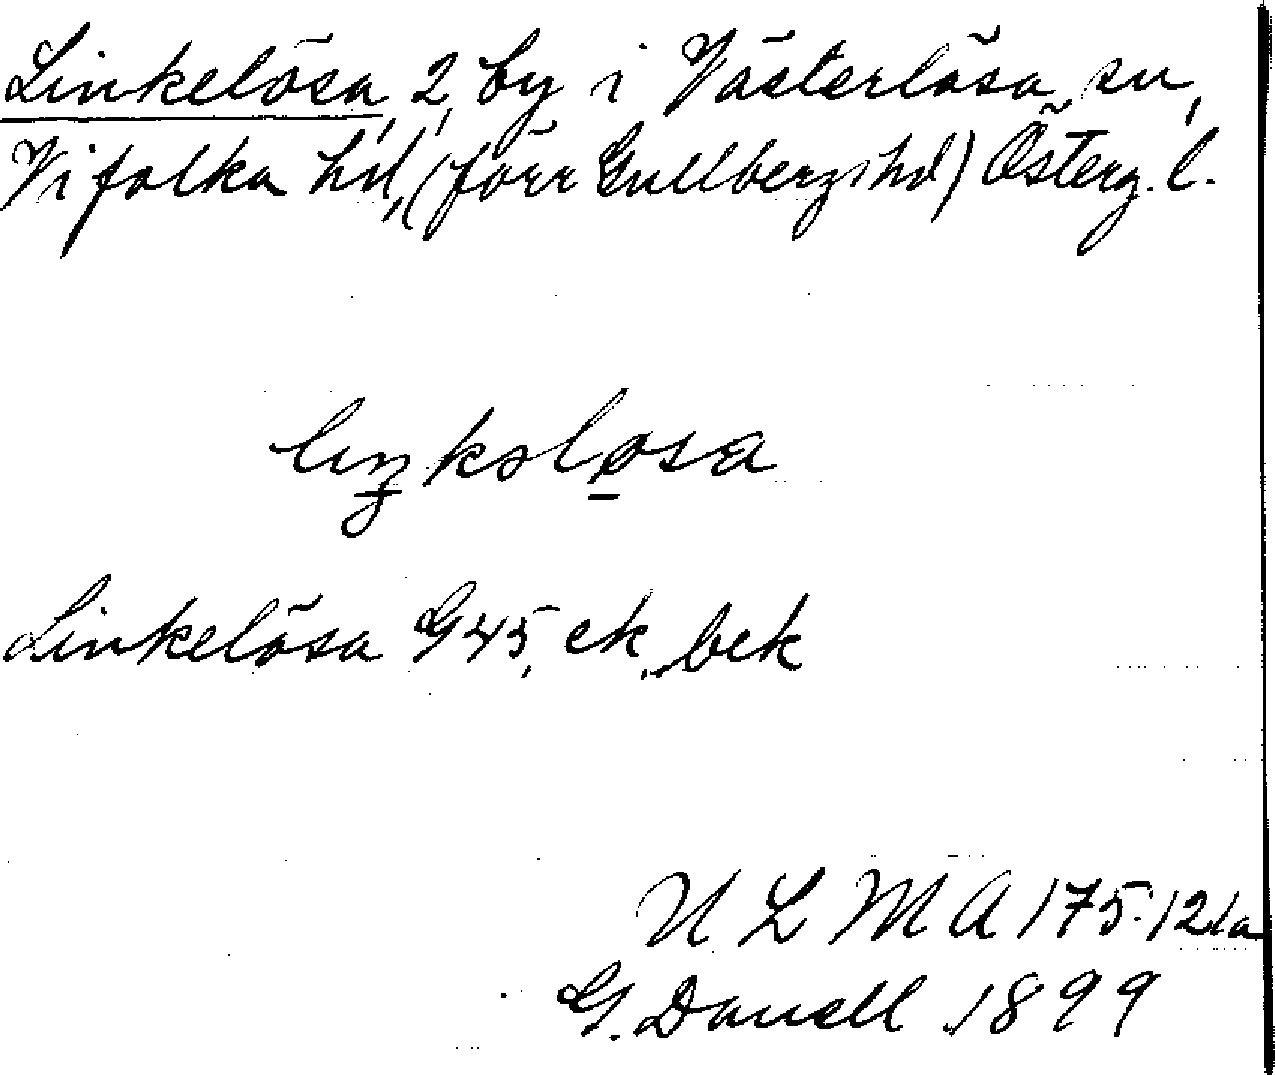 Linkelösa, 2, by i Västerlösa sn,
Vifolka hd, (förr Gullbergs hd) Österg. l.
liŋkəlo̱sa
Linkelösa G45, ek, bek
ULMA 175:121a
G. Danell 1899